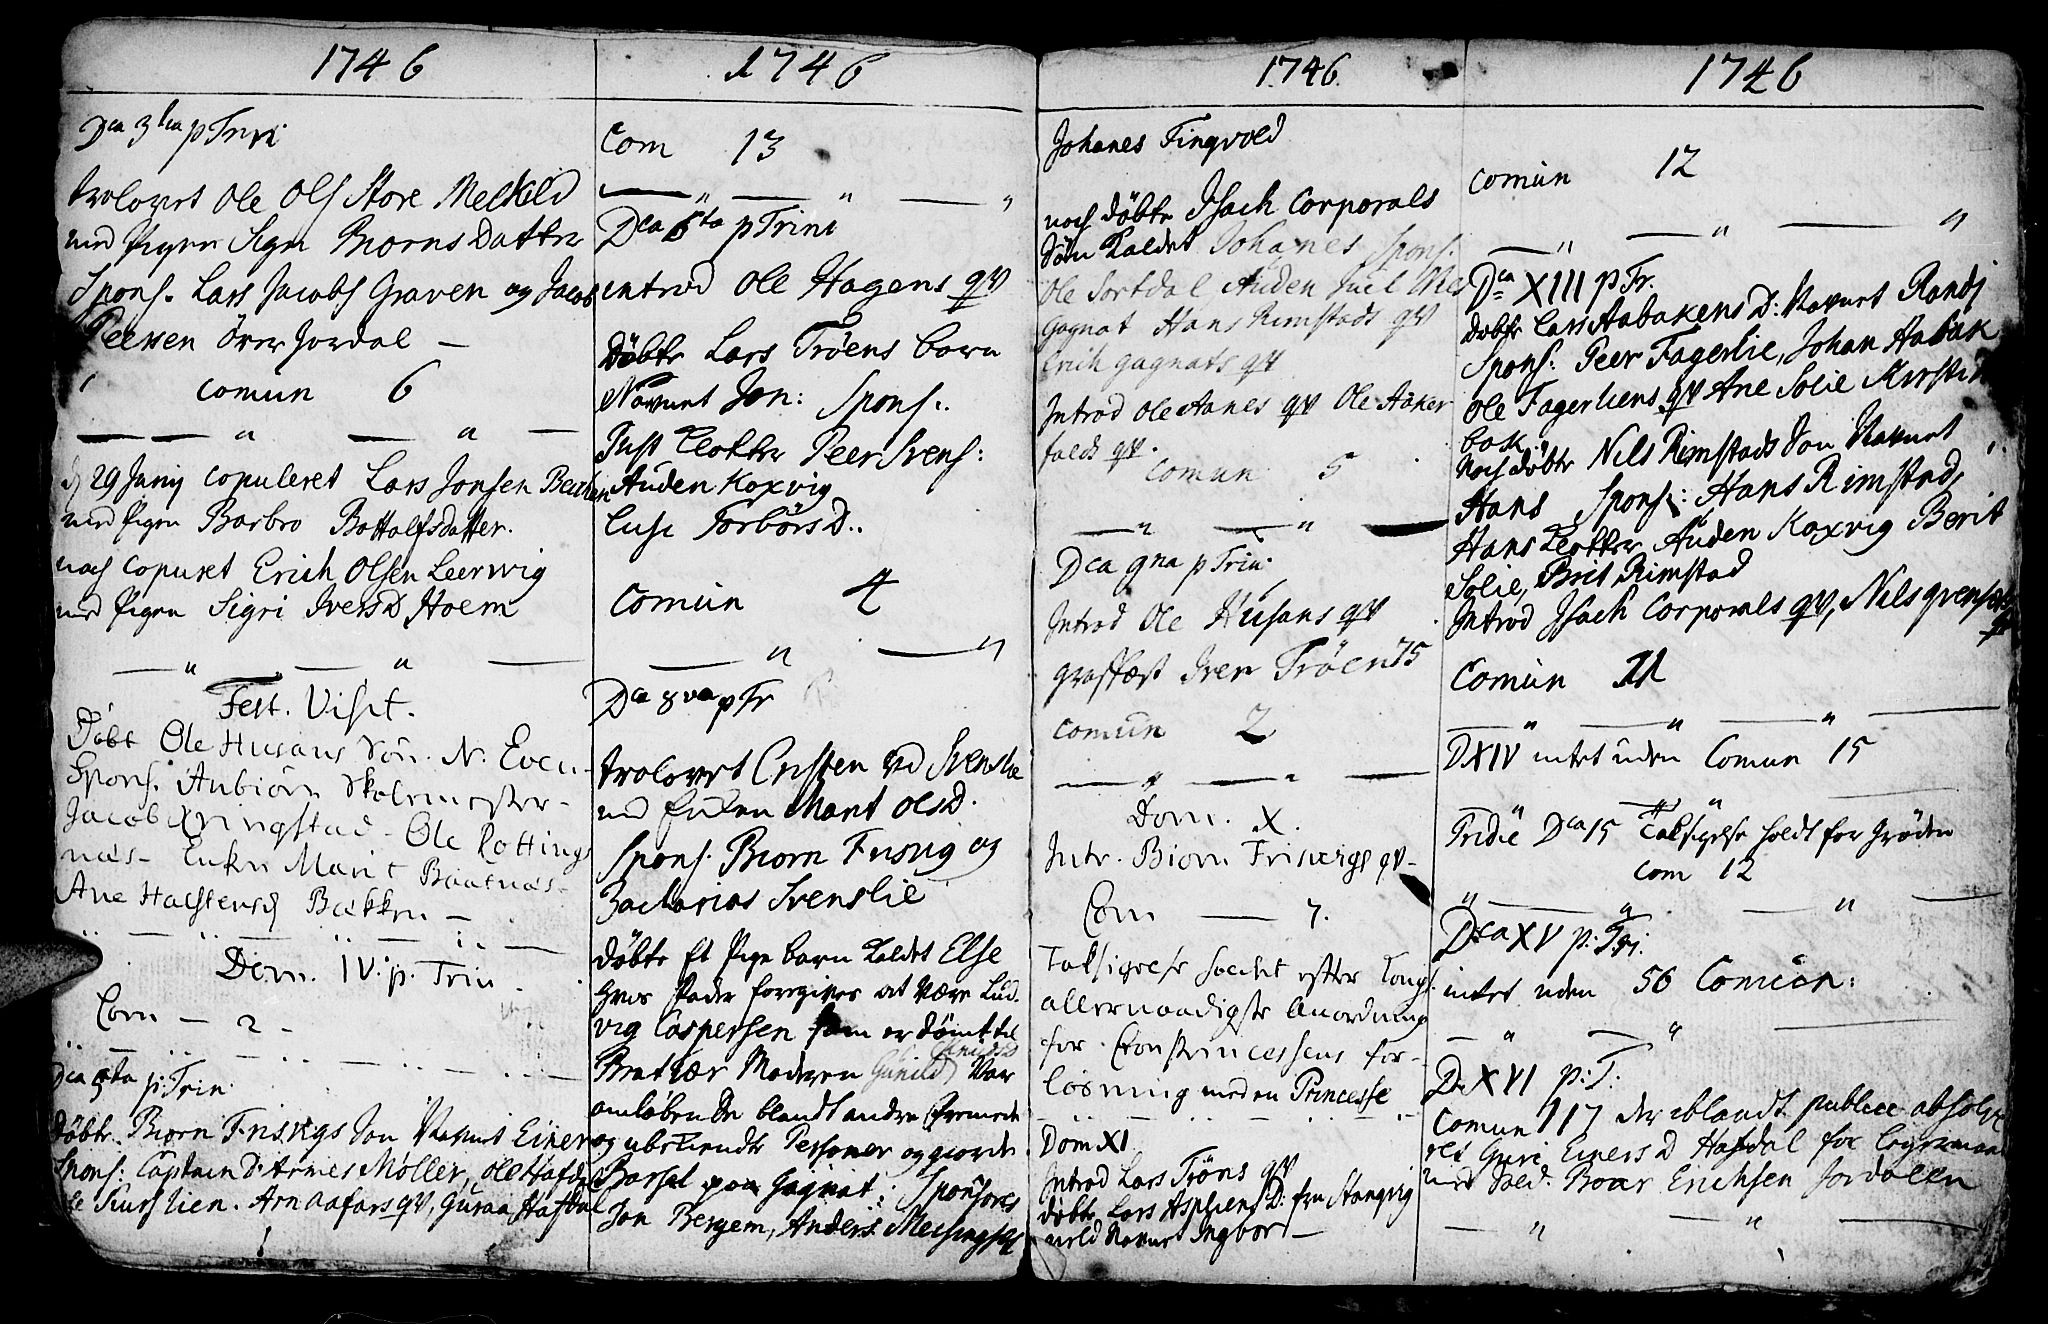 1746
Dca 3tia p Trin
trolovet Ole Ols Store Melkild
med Pigen Sigri Biorns Datter
Spons. Lars Jacobs Graven og Jacob
Peersen över Jordal —
comun 6
d 29 Junij copuleret Lars Jonsen
med Pigen Barbro Bottolfsdatter.
noch copulet Erich Olsen Leervig
med Pigen Sigri IversD, Hoem
Fest. Visit.
Döbt Ole Husans Sön. N. Even
Spons. Anbiörn Skolemester-
Jacob Kringstad - Ole Rotting
næs - Enken Marit Baatnæs-
Ane Halstensd Bækken —
Dom. IV. p. Trin
Com — 2 -
Dca 5ta p: Trin.
Döbte Biorn Frisvigs Son Navnet Einer
Spons: Captain D: Arnes Møller, Ole Hafda
Siurslien. Arnaafars qv, Guraa Hafdal
1746
Com 13
Dca 6ta p Trini
introd Ole Hagens qv
Döbte Lars Tröens barn
Navnet Jon: Spons:
Just Klokker Peer Svens:
Auden Koxvig
Lusi TorbörsD..
Comun 4
Dca 8va p Tr
trolovet Cristen Svenslie
med Enken Marit OlsD.
Spons. Biorn Fusvig og
Zacharias Svenslie
Döbte Et Pige barn kaldet Else
hvis Fader foregives at være Lud-
vig Caspersen som er dömt til
Moderen Gunild var
omløbende blandt andre fremede
og ubekiendte Personer og giorde
Barsel paa Gagnat: Sponsores
Jon Bergem, Anders Meisings qv
1746
Johanes Tingvold
noch döbte Isach Corporals
Sön kaldet Johanes Spons.
Ole Sortdal Auden Juel
Gagnat Hans Rimstads qv
Erich gagnats qv
Introd Ole Aanes qv Ole Aaker
falds qv.
Comun 5
Dca 9na p Trin.
Introd Ole Husans qv
graffæst Iver Tröen 75
comun 2
Dom. X.
Intr. Biorn Frisvigs qv-
Com — 7.
Taksigelse holdet efter Kongl.
allernaadigste Anordning
for Cronprincessens for-
løsning med en Princesse
Dom XI
Introd Lars Tröns qv
döbte Lars Aspliens D. fra Stangvig
Navnet Ingbor —
1746
comun 12
Dca XIII p Tr.
döbte Lars Aabakens D: Navnet Randi
Spons: Peer Fagerlie, Johan Aabak
Ole Fagerliens qv Ane Solie Kirsti
bak
Noch döbte Nils Rimstads Son Navnet
Hans Spons: Hans Rimstad,
Hans Klokker Auden Koxvig Berit
Solie, Brit Rimstad
Introd Isach Corporals qv, Nils
qv
Comun 21
D XIV intet uden Comun 15
Pridie Dca 15 Taksigelse holdt for Gröden
Com 12
Dca XV p: Tri:
intet uden 56 Comun:
D. XVI p: T:
Comun 117 der iblandt publice absolv
Guri Einers D Hafdal for Leyermaal
med Sold. Roar Erichsen Jordalen